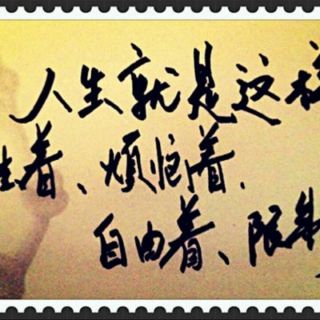 人生就是这样
着、烦恼着、
自由着、限制